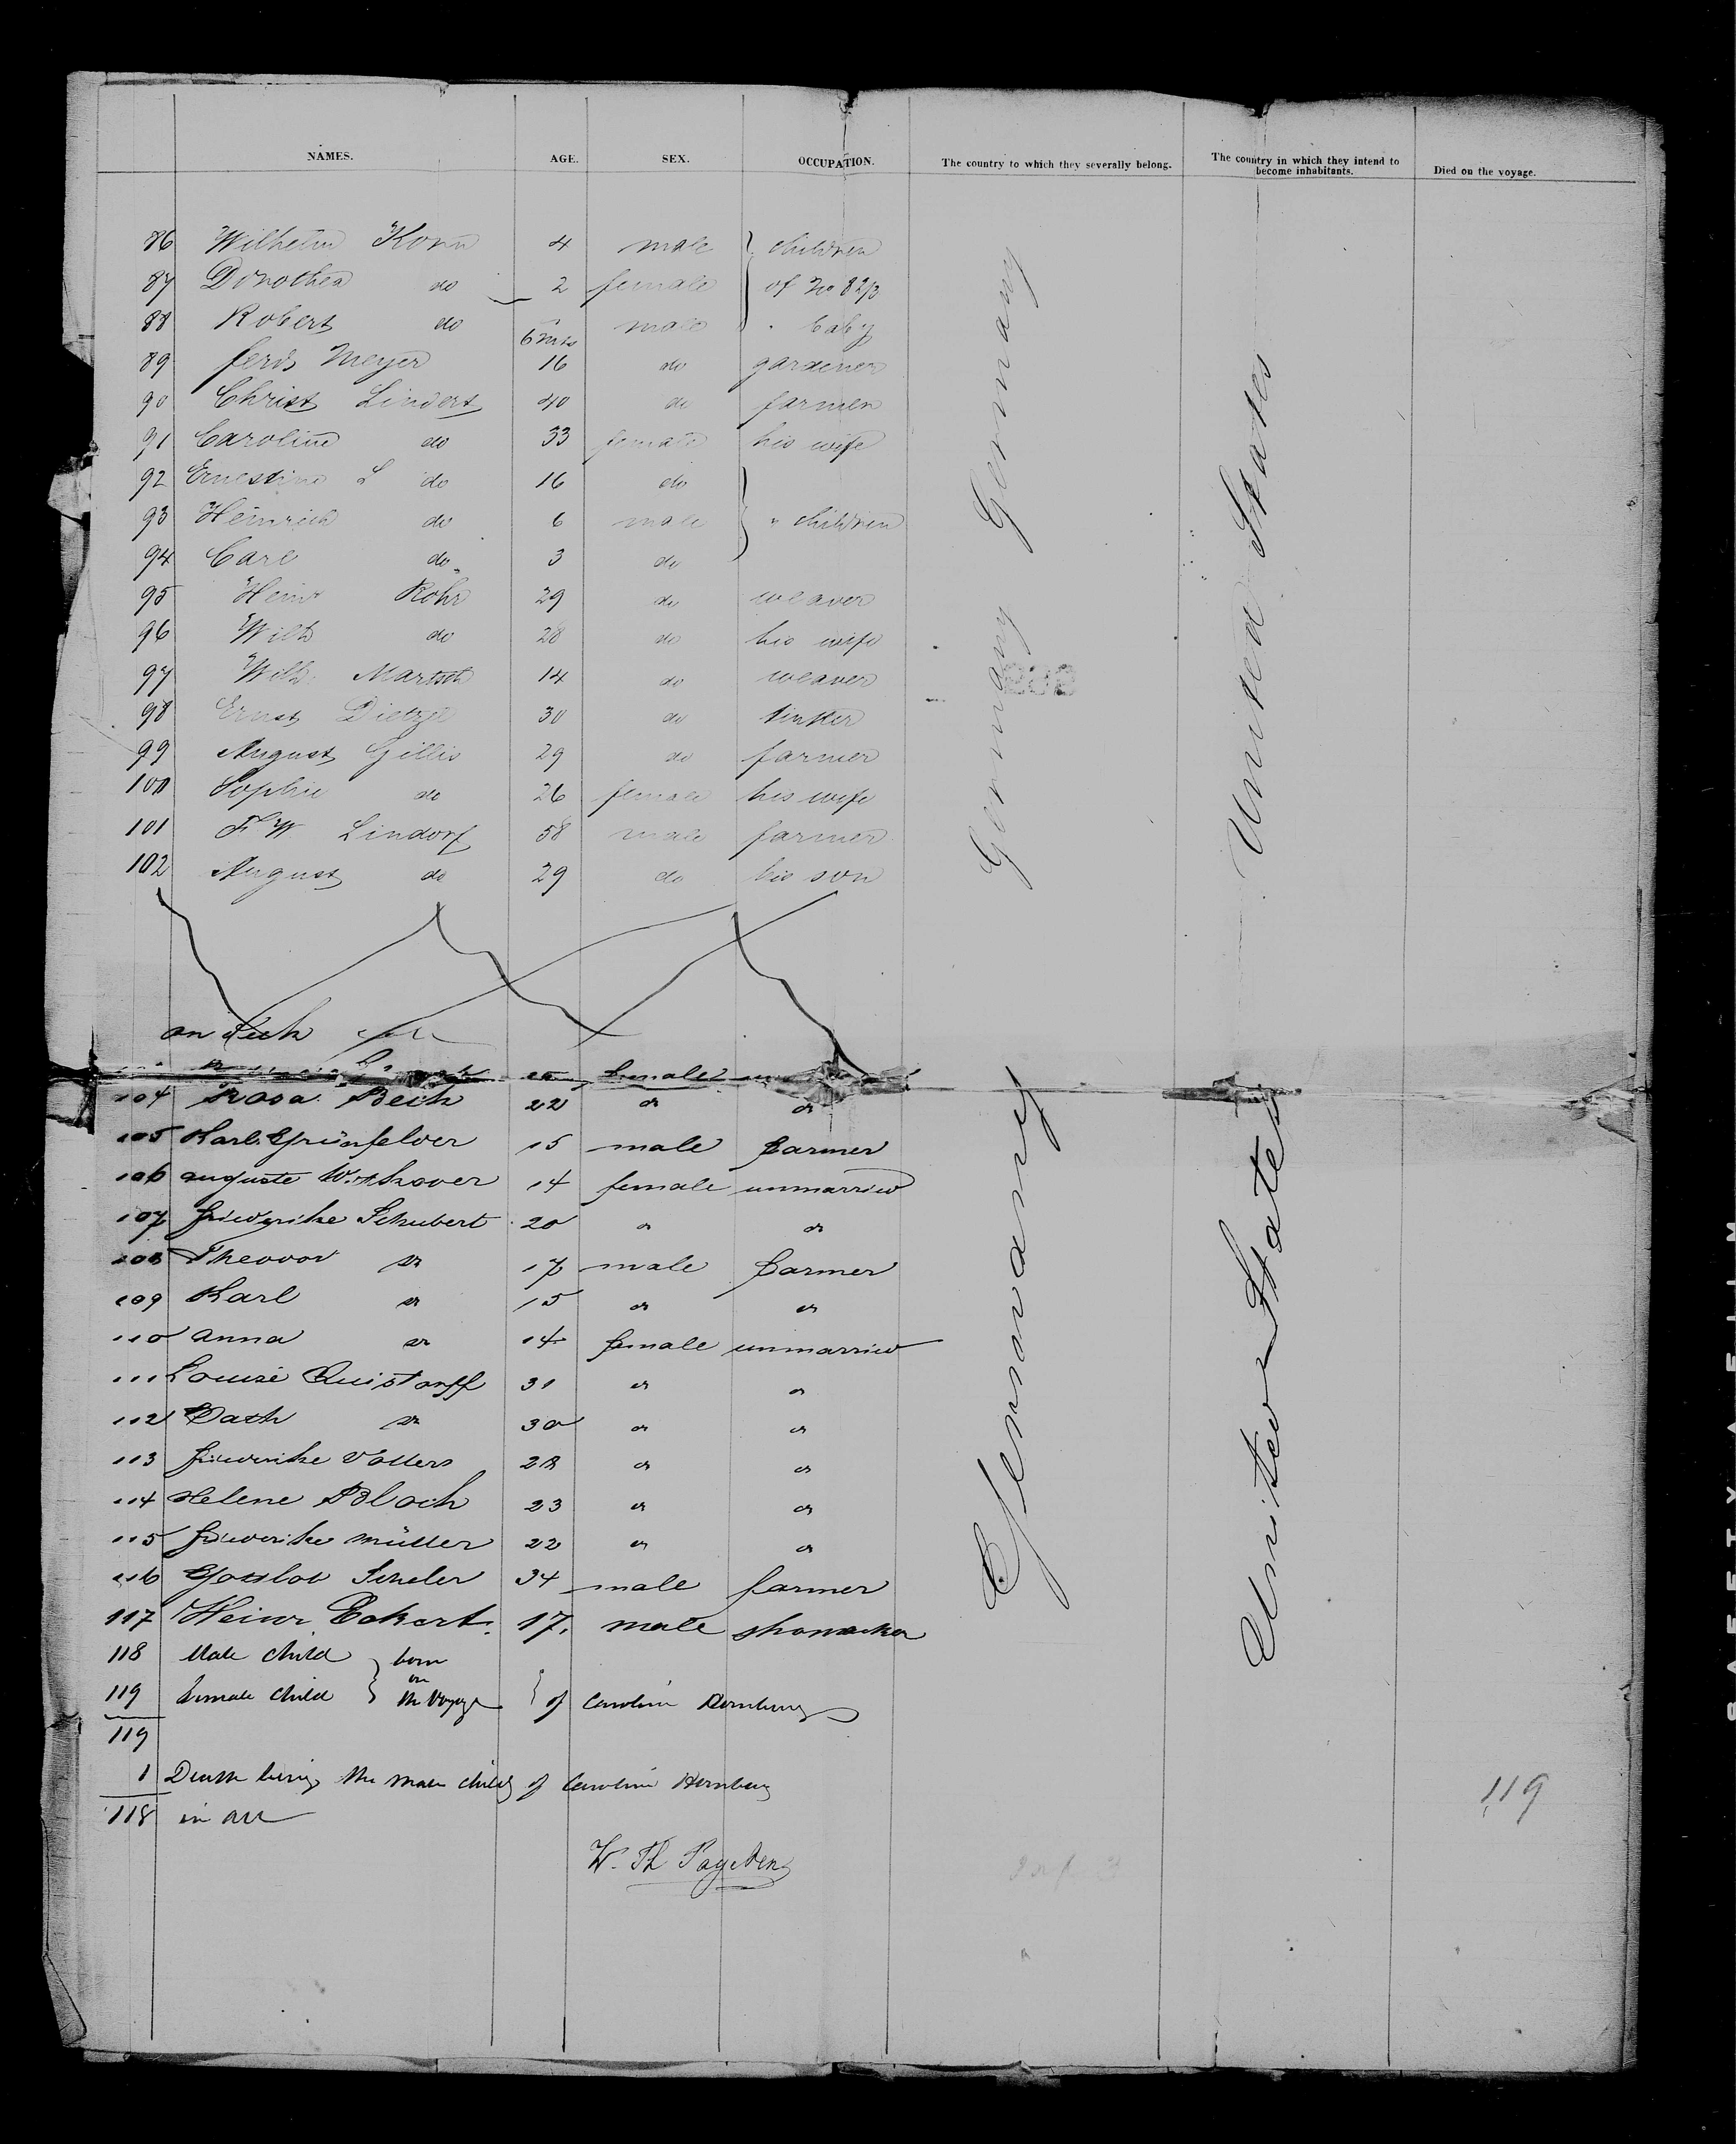 NAMES. AGE. SEX. OCCUPATION. The country to which they severally belong. The country in which they intend to become inhabitants. Died on the voyage.
86 Wilhelm Korn 4 male children
87 Dorothea do 2 female of No 82/3
88 Robert do 6 mts male baby
89 Ferd Meyer 16 do gardener
90 Christ Lindert 40 do farmer
91 Caroline do 33 female his wife
92 Ernestine L do 16 do
93 Heinrich do 6 male " children
94 Carl do 3 do
95 Heinr Rohr 29 do weaver
96 Wilh do 28 do his wife
97 Wilh. Martsch 14 do weaver
98 Ernst Dietzel 30 do tinker
99 August Gillis 29 do farmer
100 Sophie do 26 female his wife
101 F. W. Lindorf 58 male farmer
102 August do 29 do his son
Germany Germany
United States
female
104 Rosa Beck 22 do do
105 Karl Grünfelder 15 male farmer
106 Auguste 14 female unmarried
107 Friederike Schubert 20 do do
108 Theodor do 17 male farmer
109 Karl do 15 do do
110 Anna do 14 female unmarried
111 Louise Quistorff 31 do do
112 Cath do 30 do do
113 Friederike Volters 28 do do
114 Helene Bloch 23 do do
115 Friederike Müller 22 do do
116 Gottlob Scheler 34 male farmer
117 Heinr. Eckert. 17. male shomacker
118 Male child born
on
119 Female child the Voyage of Caroline Hernburg
119
1 Death being the male child of Caroline Hernburg
118 in all
Germany
United States
119
W. Th